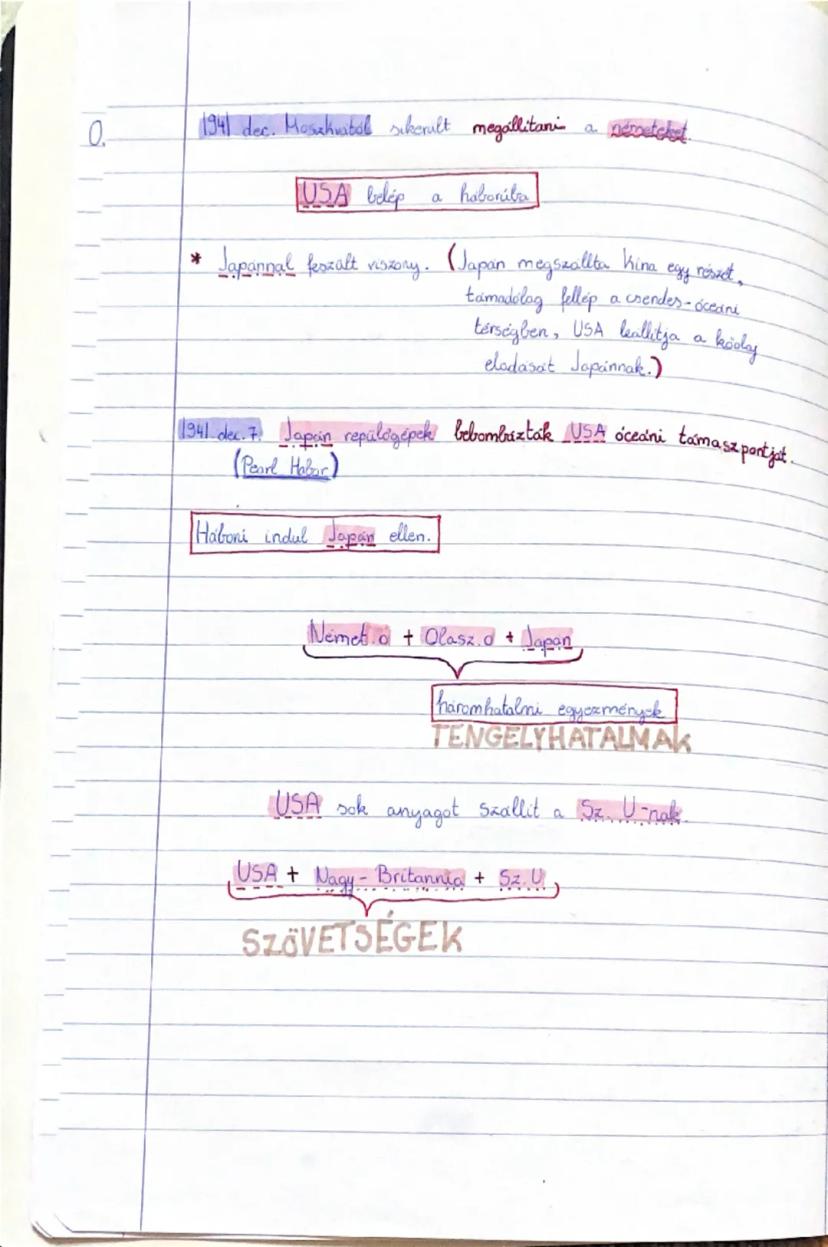 0. 1941 dec. Moszkvától sikerült megállítani a németeket.
USA belép a háborúba
* Japánnal feszült viszony. (Japán megszállta Kína egy részét,
támadólag fellép a csendes-óceáni
térségben, USA leállítja a kőolaj
eladását Japánnak.)
1941. dec. 7. Japán repülőgépek bebombázták USA óceáni támaszpontját.
(Pearl Habor)
Háború indul Japán ellen.
Német.o + Olasz.o + Japán
háromhatalmi egyezmények
TENGELYHATALMAK
USA sok anyagot szállít a Sz. U-nak.
USA + Nagy-Britannia + Sz.U
SZÖVETSÉGEK